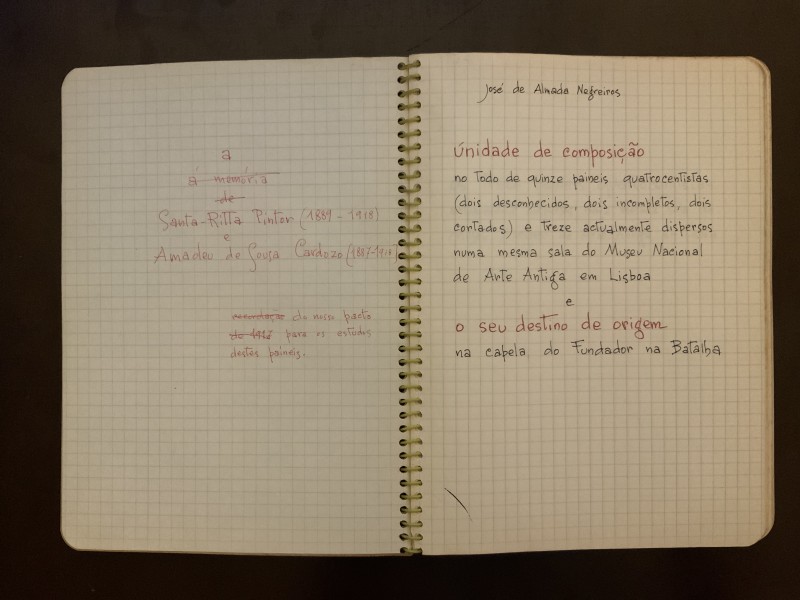 a
à memória
de
Santa-Ritta Pintor (1889 - 1918)
e
Amadeu de Sousa Cardozo (1887-1918)
recordação do nosso pacto
de 1917 para os estudos
destes paineis.
José de Almada Negreiros
Únidade de composição
no todo de quinze paineis quatrocentistas
(dois desconhecidos, dois incompletos, dois
cortados) e treze actualmente dispersos
numa mesma sala do Museu Nacional
de Arte Antiga em Lisboa
e
o seu destino de origem
na capela do Fundador na Batalha